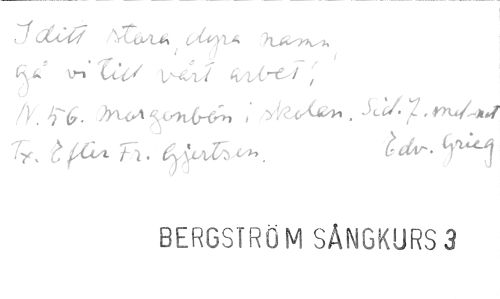 I ditt stora, dyra namn,
gå vi till vårt arbet',
N. 56. Morgonbön i skolan. Sid. 7. mel-not
Tx. Efter Fr. Gjertsen. Edv. Grieg
BERGSTRÖM SÅNGKURS 3